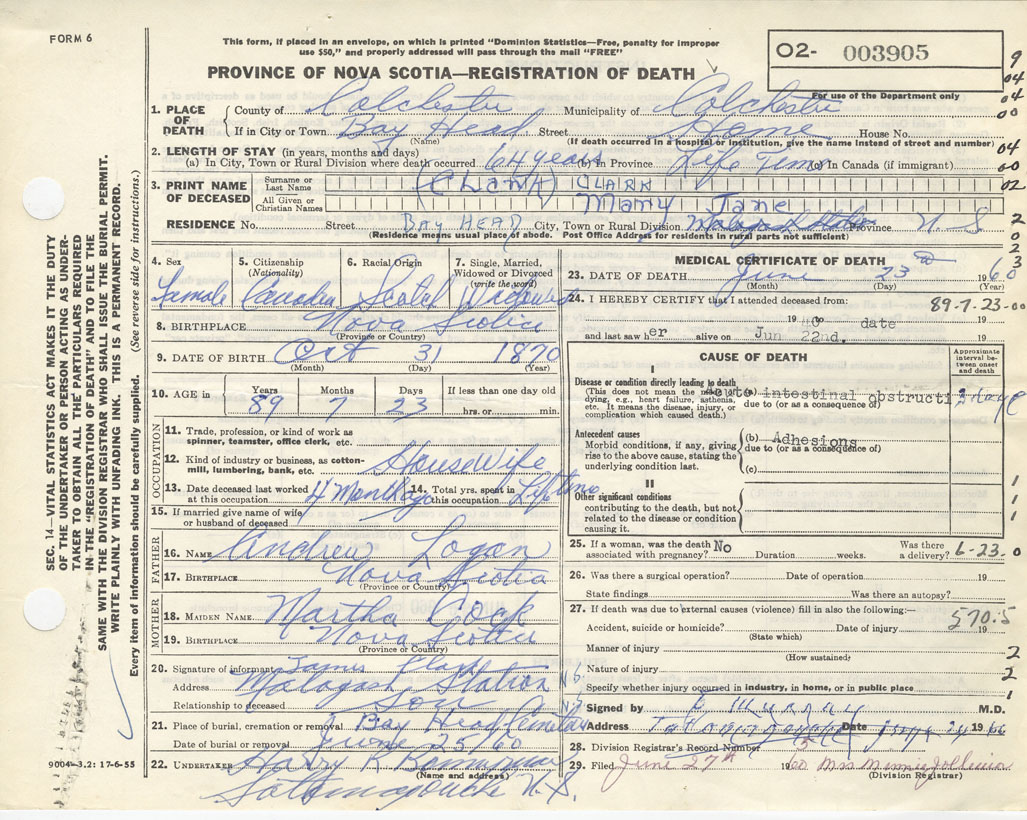 FORM 6
This form, if placed in an envelope, on which is printed "Dominion Statistics—Free, penalty for improper
use $50," and properly addressed will pass through the mail "FREE"
O2- 003905
For use of the Department only
PROVINCE OF NOVA SCOTIA—REGISTRATION OF DEATH
1. PLACE OF DEATH County of Colchester Municipality of Colchester
If in City or Town Bay Head Street Home House No.
(Name) (If death occurred in a hospital or institution, give the name instead of street and number)
2. LENGTH OF STAY (in years, months and days)
(a) In City, Town or Rural Division where death occurred 64 years (b) in Province Life Time (c) In Canada (if immigrant)
3. PRINT NAME OF DECEASED Surname or Last Name (CLARK) CLARK
All Given or Christian Names Mary Jane
RESIDENCE No. Street BAY HEAD City, Town or Rural Division Malagash Station Province N. S
(Residence means usual place of abode. Post Office Address for residents in rural parts not sufficient)
4. Sex 5. Citizenship (Nationality) 6. Racial Origin 7. Single, Married, Widowed or Divorced (write the word)
Female Canadian Scotch Widowed
8. BIRTHPLACE Nova Scotia
(Province or Country)
9. DATE OF BIRTH Oct 31 1870
(Month) (Day) (Year)
10. AGE in Years Months Days If less than one day old
89 7 23 hrs. or min.
OCCUPATION
11. Trade, profession or kind of work as spinner, teamster, office clerk, etc.
12. Kind of industry or business, as cotton-mill, lumbering, bank, etc. HouseWife
13. Date deceased last worked at this occupation 4 Months ago 14. Total yrs. spent in this occupation Lifetime
15. If married give name of wife or husband of deceased
FATHER
16. NAME Andrew Logan
17. BIRTHPLACE Nova Scotia
(Province or Country)
MOTHER
18. MAIDEN NAME Martha Cock
19. BIRTHPLACE Nova Scotia
(Province or Country)
20. Signature of informant James Clark
Address Malagash Station N.S.
Relationship to deceased Son
21. Place of burial, cremation or removal Bay Head Cemetary
Date of burial or removal June 25/60
22. UNDERTAKER Harry R
(Name and address)
Tatamagouche N.S.
MEDICAL CERTIFICATE OF DEATH
23. DATE OF DEATH June 23 1960
(Month) (Day) (Year)
24. I HEREBY CERTIFY that I attended deceased from:
89-7-23-00
19 40 to date 19
and last saw her alive on Jun 22nd. 19
CAUSE OF DEATH
Approximate interval between onset and death
I
Disease or condition directly leading to death
(This does not mean the mode of dying, e.g., heart failure, asthenia, etc. It means the disease, injury, or complication which caused death.)
(a) acute intestinal obstructi 3 days
due to (or as a consequence of)
Antecedent causes
Morbid conditions, if any, giving rise to the above cause, stating the underlying condition last.
(b) Adhesions
due to (or as a consequence of)
(c)
II
Other significant conditions
contributing to the death, but not related to the disease or condition causing it.
25. If a woman, was the death associated with pregnancy? No Duration weeks. Was there a delivery? 6-23-0
26. Was there a surgical operation? Date of operation 19
State findings Was there an autopsy?
27. If death was due to external causes (violence) fill in also the following:—
570.5
Accident, suicide or homicide? Date of injury 19
(State which)
Manner of injury
(How sustained)
Nature of injury
Specify whether injury occurred in industry, in home, or in public place
Signed by D Murray M.D.
Address Tatamagouche Date June 24 1960
28. Division Registrar's Record Number 5
29. Filed June 27th 1960 Mrs Minnie
(Division Registrar)
SEC. 14—VITAL STATISTICS ACT MAKES IT THE DUTY
OF THE UNDERTAKER OR PERSON ACTING AS UNDER-
TAKER TO OBTAIN ALL THE PARTICULARS REQUIRED
IN THE "REGISTRATION OF DEATH" AND TO FILE THE
SAME WITH THE DIVISION REGISTRAR WHO SHALL ISSUE THE BURIAL PERMIT.
WRITE PLAINLY WITH UNFADING INK. THIS IS A PERMANENT RECORD.
Every item of information should be carefully supplied. (See reverse side for instructions.)
9004-3.2: 17-6-55
9
04
04
00
04
00
02
2
0
2
3
1
1
1
2
2
1